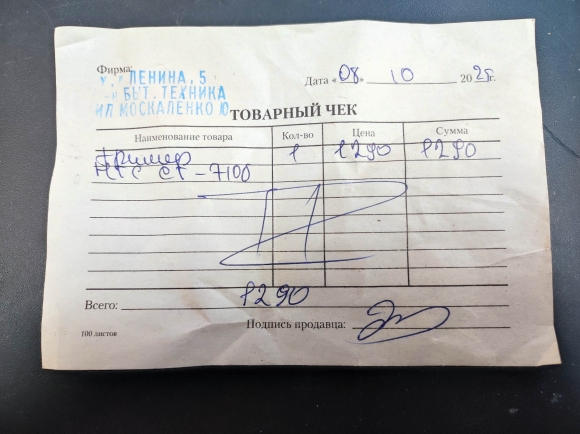 Фирма:
ЛЕНИНА, 5
БЫТ. ТЕХНИКА
ИП МОСКАЛЕНКО Ю
Дата «08» 10 2025г.
ТОВАРНЫЙ ЧЕК
Наименование товара Кол-во Цена Сумма
Тример 1 1290 1290
HTC CT-7100
Всего: 1290
Подпись продавца:
100 листов